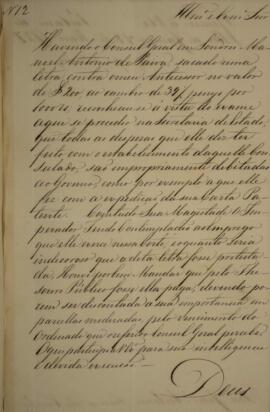 N 12
Illmo e Exmo Snr
Havendo o Consul Geral em Londres Ma-
noel Antonio de Paiva sacado uma
Letra, contra o meu Antecessor no valor
de £ 200 ao cambio de 32½ pences por
1000 rs, reconheceu-se á vista do exame
a que se procedeu na Secretaria de Estado,
que todas as despezas que elle diz ter
feito com o estabelecimento daquelle Con-
sulado, são impropriamente debitadas
ao Governo, como por exemplo a que elle
fez com a expedição da sua Carta Pa-
tente. Comtudo Sua Magestade o Im-
perador Tendo Contemplação ao emprego
que elle exerce nessa Corte, e quanto seria
indecoroso que a dita letra fosse protesta-
da, Houve por bem Mandar que pelo The-
souro Publico fosse ella paga, devendo po-
rem ser descontada a sua importancia em
parcellas moderadas, pelo vencimento do
Ordenado que o referido Consul Geral percebe.
O que participo a V. Sa. para sua intelligencia
e devida execução.
Deus